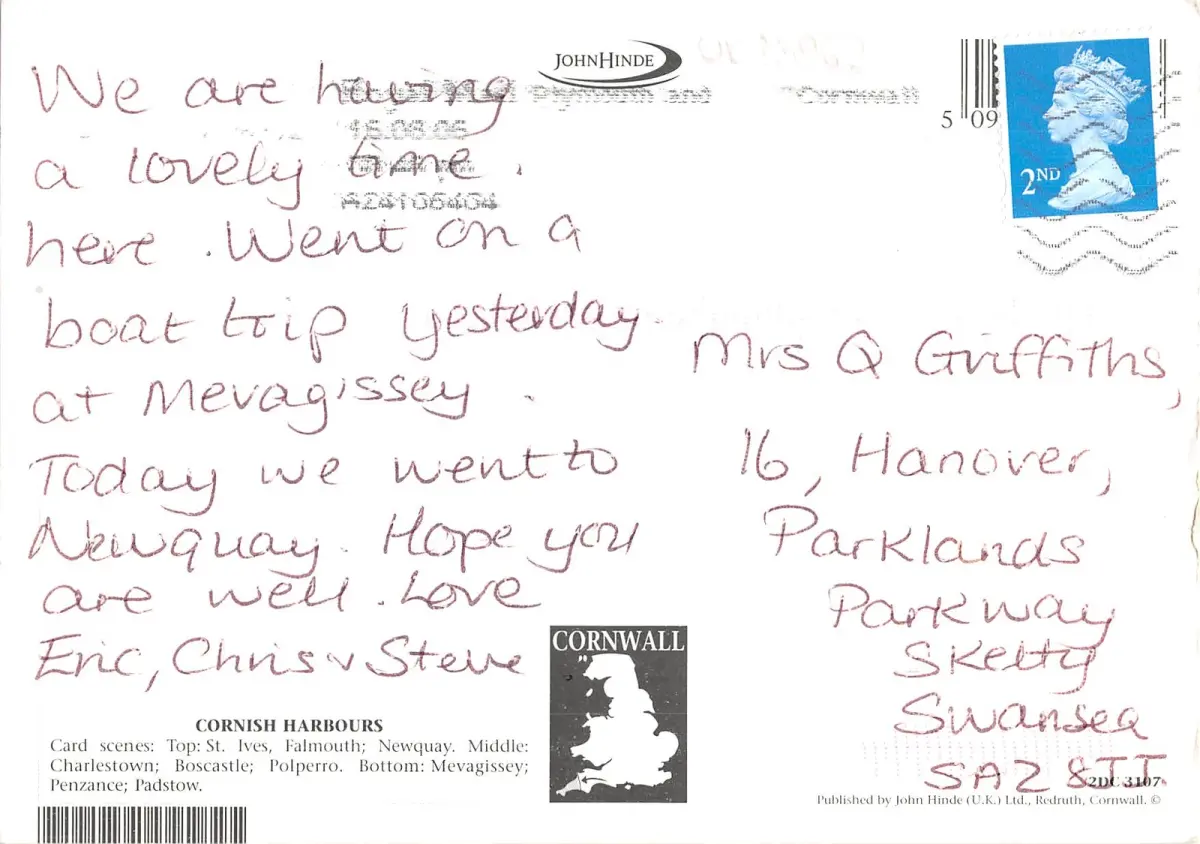 JOHN HINDE
We are having
a lovely time.
here. Went on a
boat trip yesterday
at Mevagissey.
Today we went to
Newquay. Hope you
are well. Love
Eric, Chris & Steve
Plymouth and Cornwall
A24106404
5 09
2ND
Mrs Q Griffiths,
16, Hanover,
Parklands
Parkway
Sketty
Swansea
SA2 8TT
CORNWALL
CORNISH HARBOURS
Card scenes: Top: St. Ives, Falmouth; Newquay. Middle:
Charlestown; Boscastle; Polperro. Bottom: Mevagissey;
Penzance; Padstow.
2DC 3107
Published by John Hinde (U.K.) Ltd., Redruth, Cornwall. ©